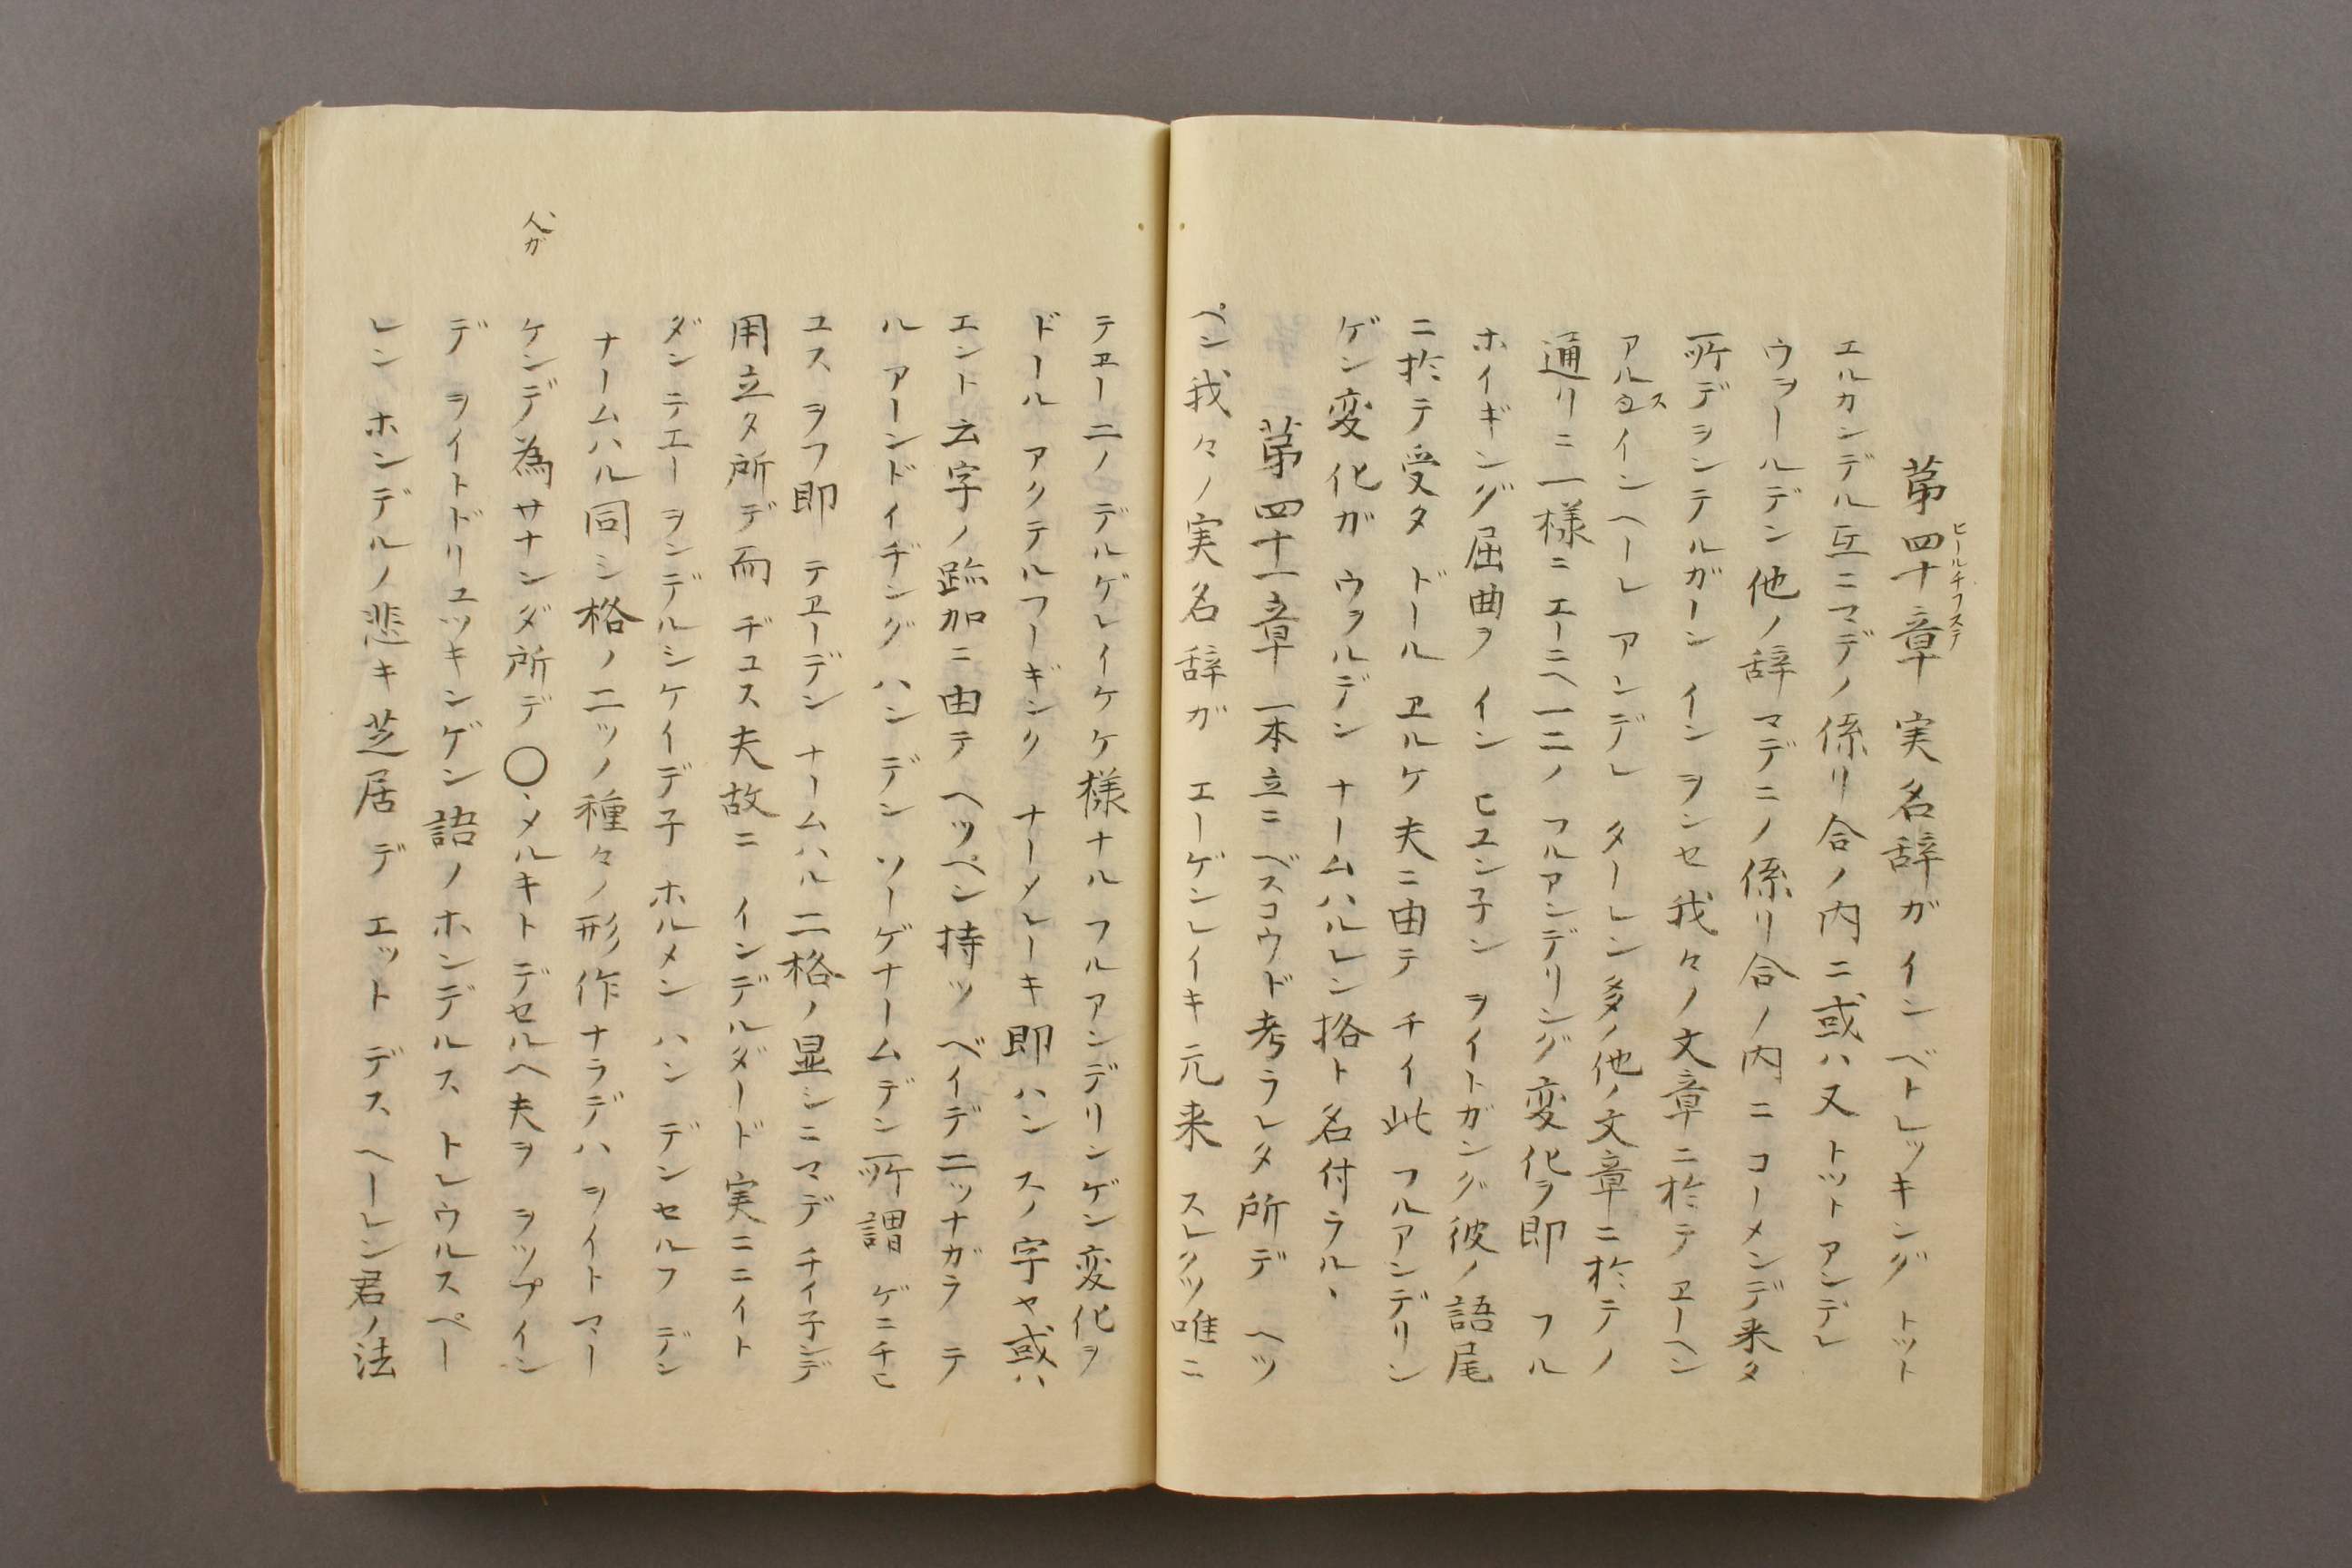 第四十章 実名辞ガ インベトレッキング トット
ヒールチフステ
エルカンデル互ニマデノ係リ合ノ内ニ或ハ又 トットアンデレ
ウヲールデン他ノ辞 マデニノ係リ合ノ内ニ コーメンデ来タ
所デヲンテルガーン イン ヲンセ我々ノ文章ニ於テ ヱーヘン
アルスインヘーレ アンデレ ターレン多ノ他ノ文章ニ於テノ
通リニ一様ニ エーニヘ一ニノ フルアンデリング変化ヲ即 フル
ホイギング屈曲ヲ イン ヒユン子ン ヲイトガング彼ノ語尾
ニ於テ受タ ドール ヱルケ夫ニ由テ チイ此 フルアンデリン
ゲン変化ガ ウヲルデン ナームハルレン挌ト名付ラル、
第四十一章 一本立ニ ベスコウド考ラレタ所デ ヘツ
ペン我々ノ実名辞ガ エーゲンレイキ元来 スレクツ唯ニ
テヱー二ノ デルゲレイケケ様ナル フルアンデリンゲン変化ヲ
ドール アクテルフーギンク ナーメレーキ即ハン スノ字ヤ或ハ
エント云字ノ跡加ニ由テ ヘツペン持ツ ベイデ二ツナガラ テ
ル アーンドイヂング ハン デン ソーゲナームデン所謂 ゲニチヒ
ユス ヲフ即 テヱーデン ナームハル二格ノ显シニマデ チイ子ンデ
用立タ所デ而 ヂユス夫故ニ インデルダード 実ニニイト
ダン テエー ヲンデルシケイデ子 ホルメン ハン デンセルフ デン
ナームハル同シ格ノ二ツノ種々ノ形作ナラデハ ヲイトマー
ケンデ為サナンダ所デ〇、メルキト デセルヘ夫ヲ ヲツプイン
人ガ
デ ヲイトドリュッキンゲン語ノホンデルス トレウルスペー
レン ホンデルノ悲キ芝居デ エット デス ヘーレン君ノ法